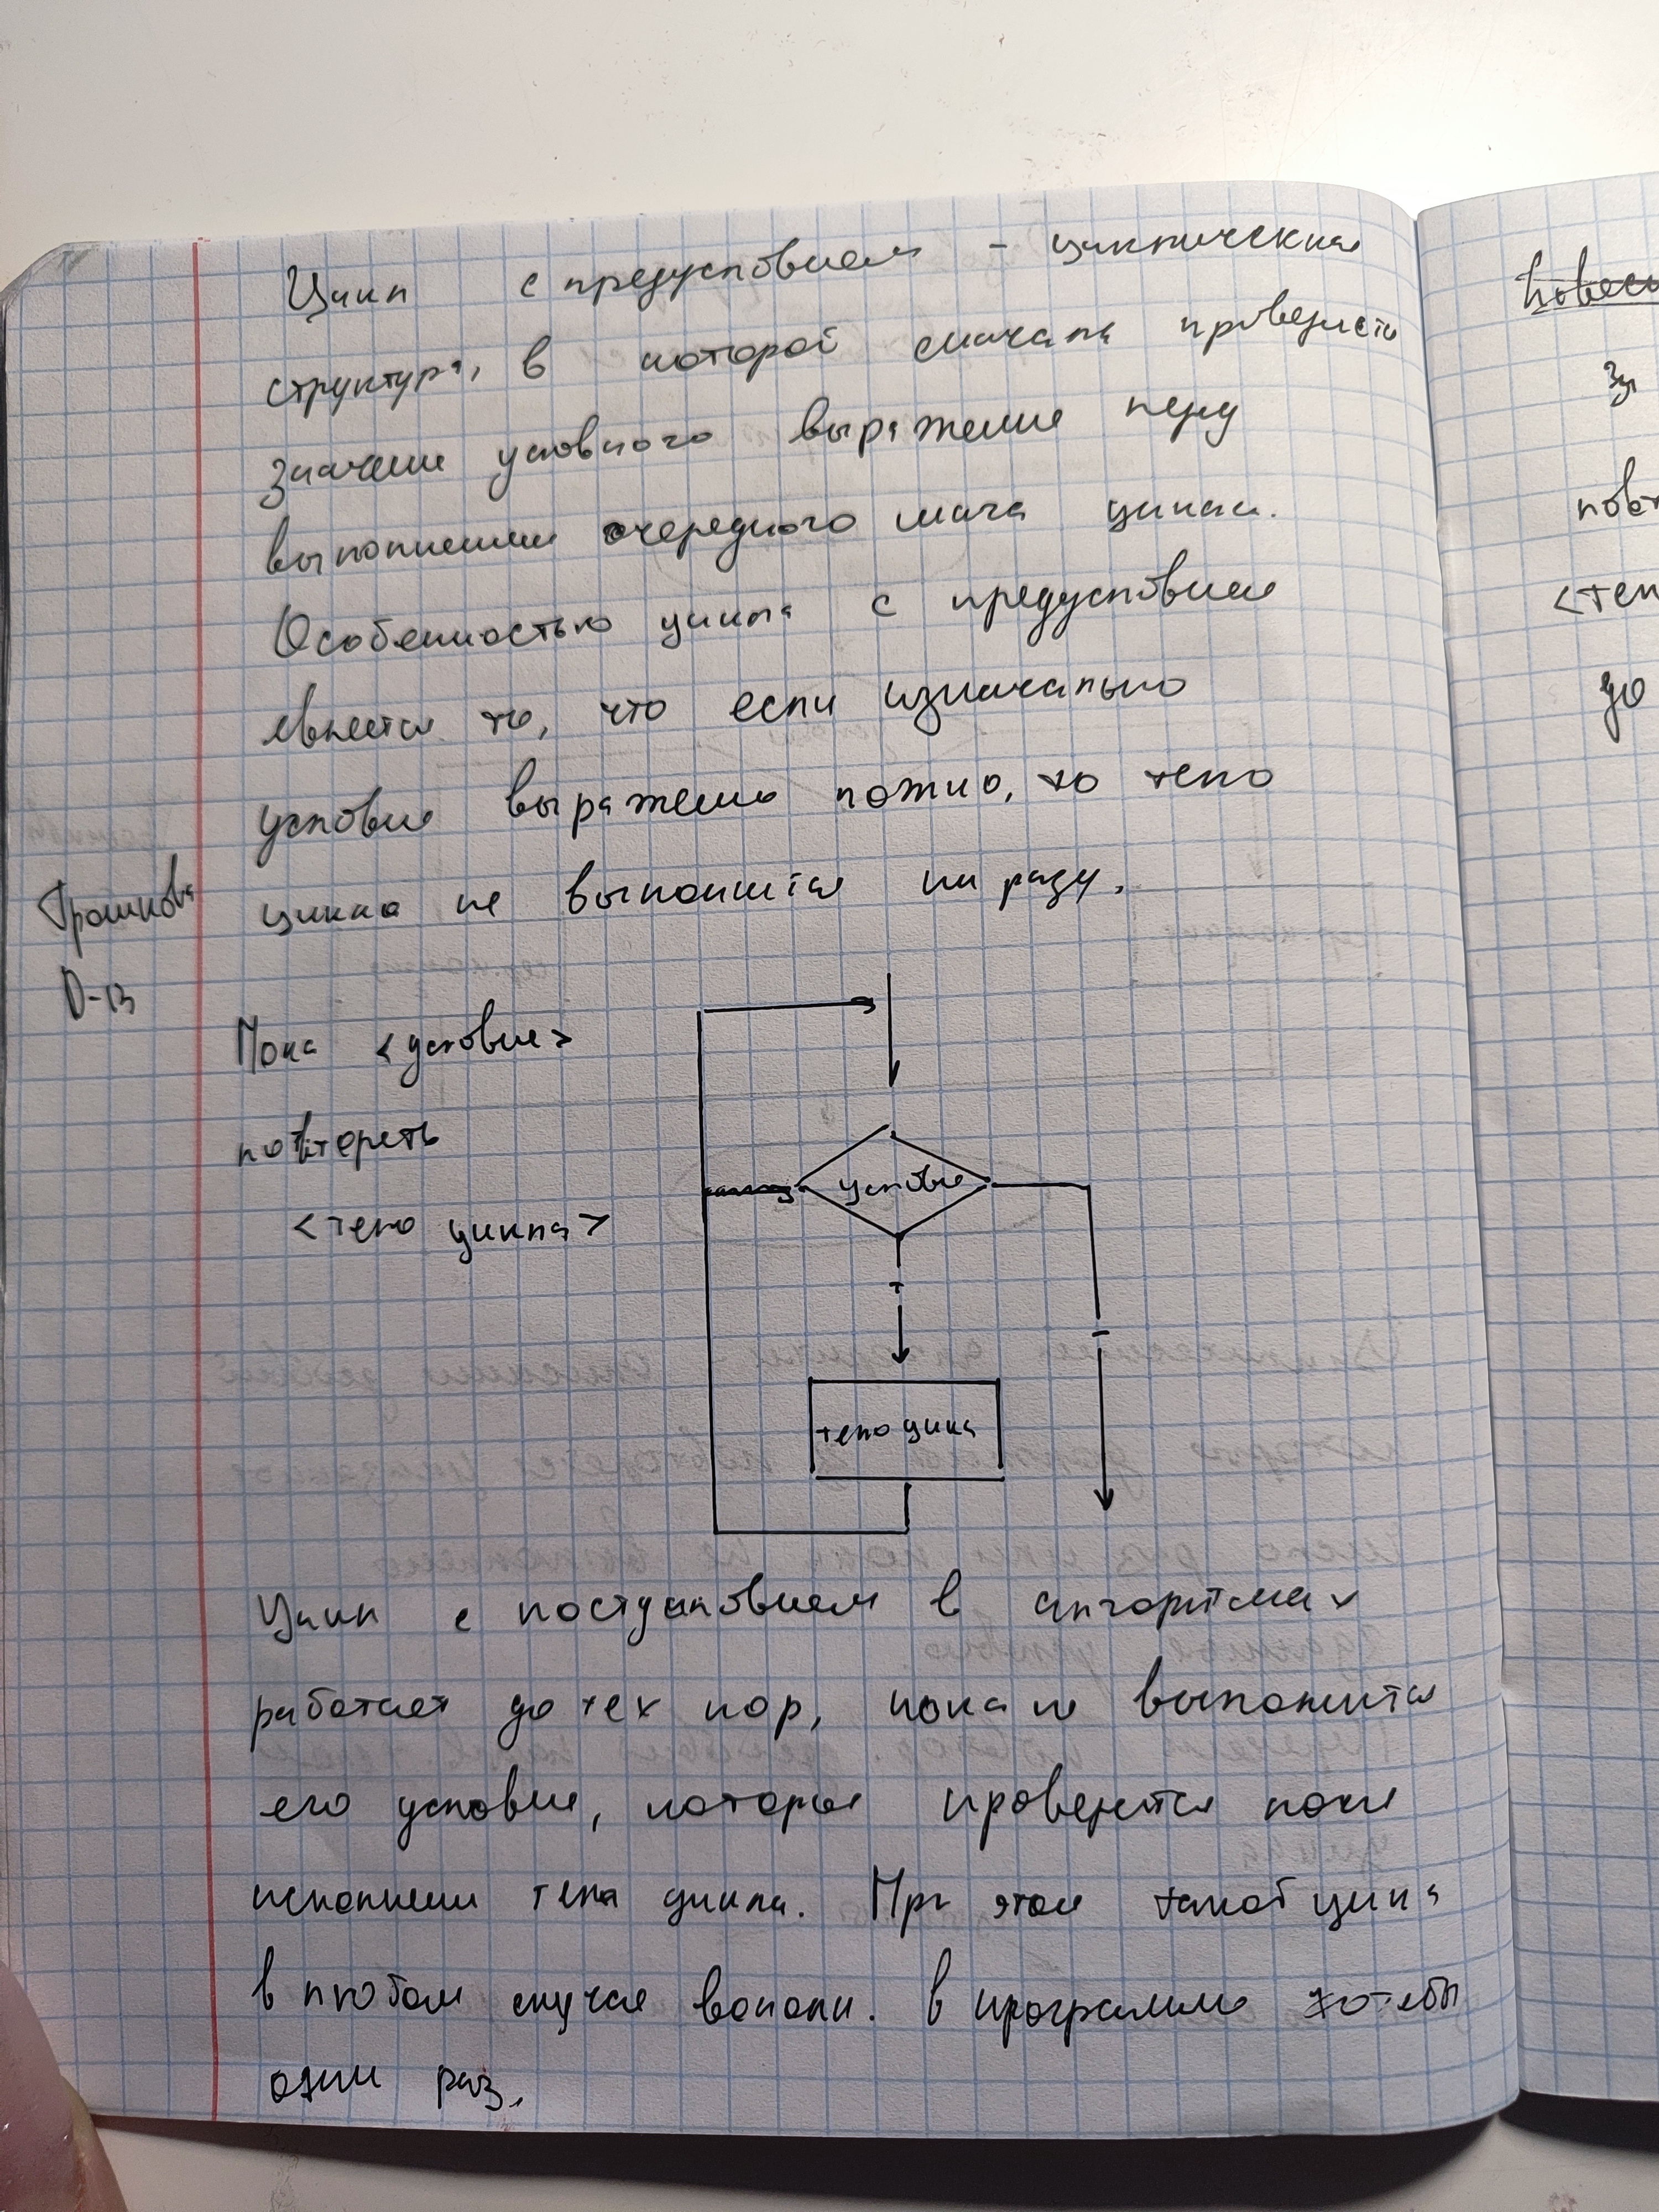 Цикл с предусловием - циклическая
структура, в которой сначала проверяется
значение условного выражение перед
выполнением очередного шага цикла.
Особенностью цикла с предусловием
является то, что если изначально
условие выражено ложно, то тело
цикла не выполнится ни разу.
Трошкова
D-13
Пока <условие>
повтореть
<тело цикла>
условие
+
-
тело цикла
Цикл с постусловием в алгоритмах
работает до тех пор, пока не выполнится
его условие, которое проверяется после
исполнения тела цикла. При этом такой цикл
в любом случае выполн. в программе хотя бы
один раз.
повт
<тел
до